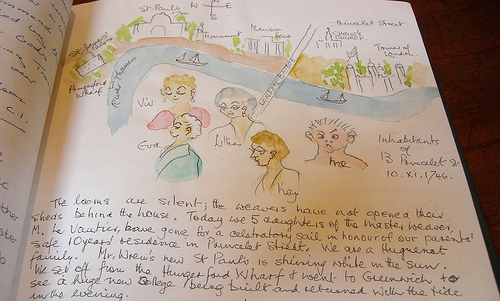 St Paul's
W E
Princelet Street
St James's
Monument
Mansion House
Tower of London
Hungerford Wharf
River Thames
Viv
Eva
Lillian
Kay
me
Inhabitants
of
13 Princelet St
10. xi. 1746.
C.I.
The looms are silent; the weavers have not opened their
sheds behind the house. Today we 5 daughters of the master weaver,
M. Le Vautier, have gone for a celebratory sail in honour of our parents'
safe 10 years' residence in Princelet Street. We are a Huguenot
family. Mr. Wren's new St Paul's is shining white in the sun.
We set off from the Hungerford Wharf & went to Greenwich to
see a huge new College being built and returned with the tide
in the evening.